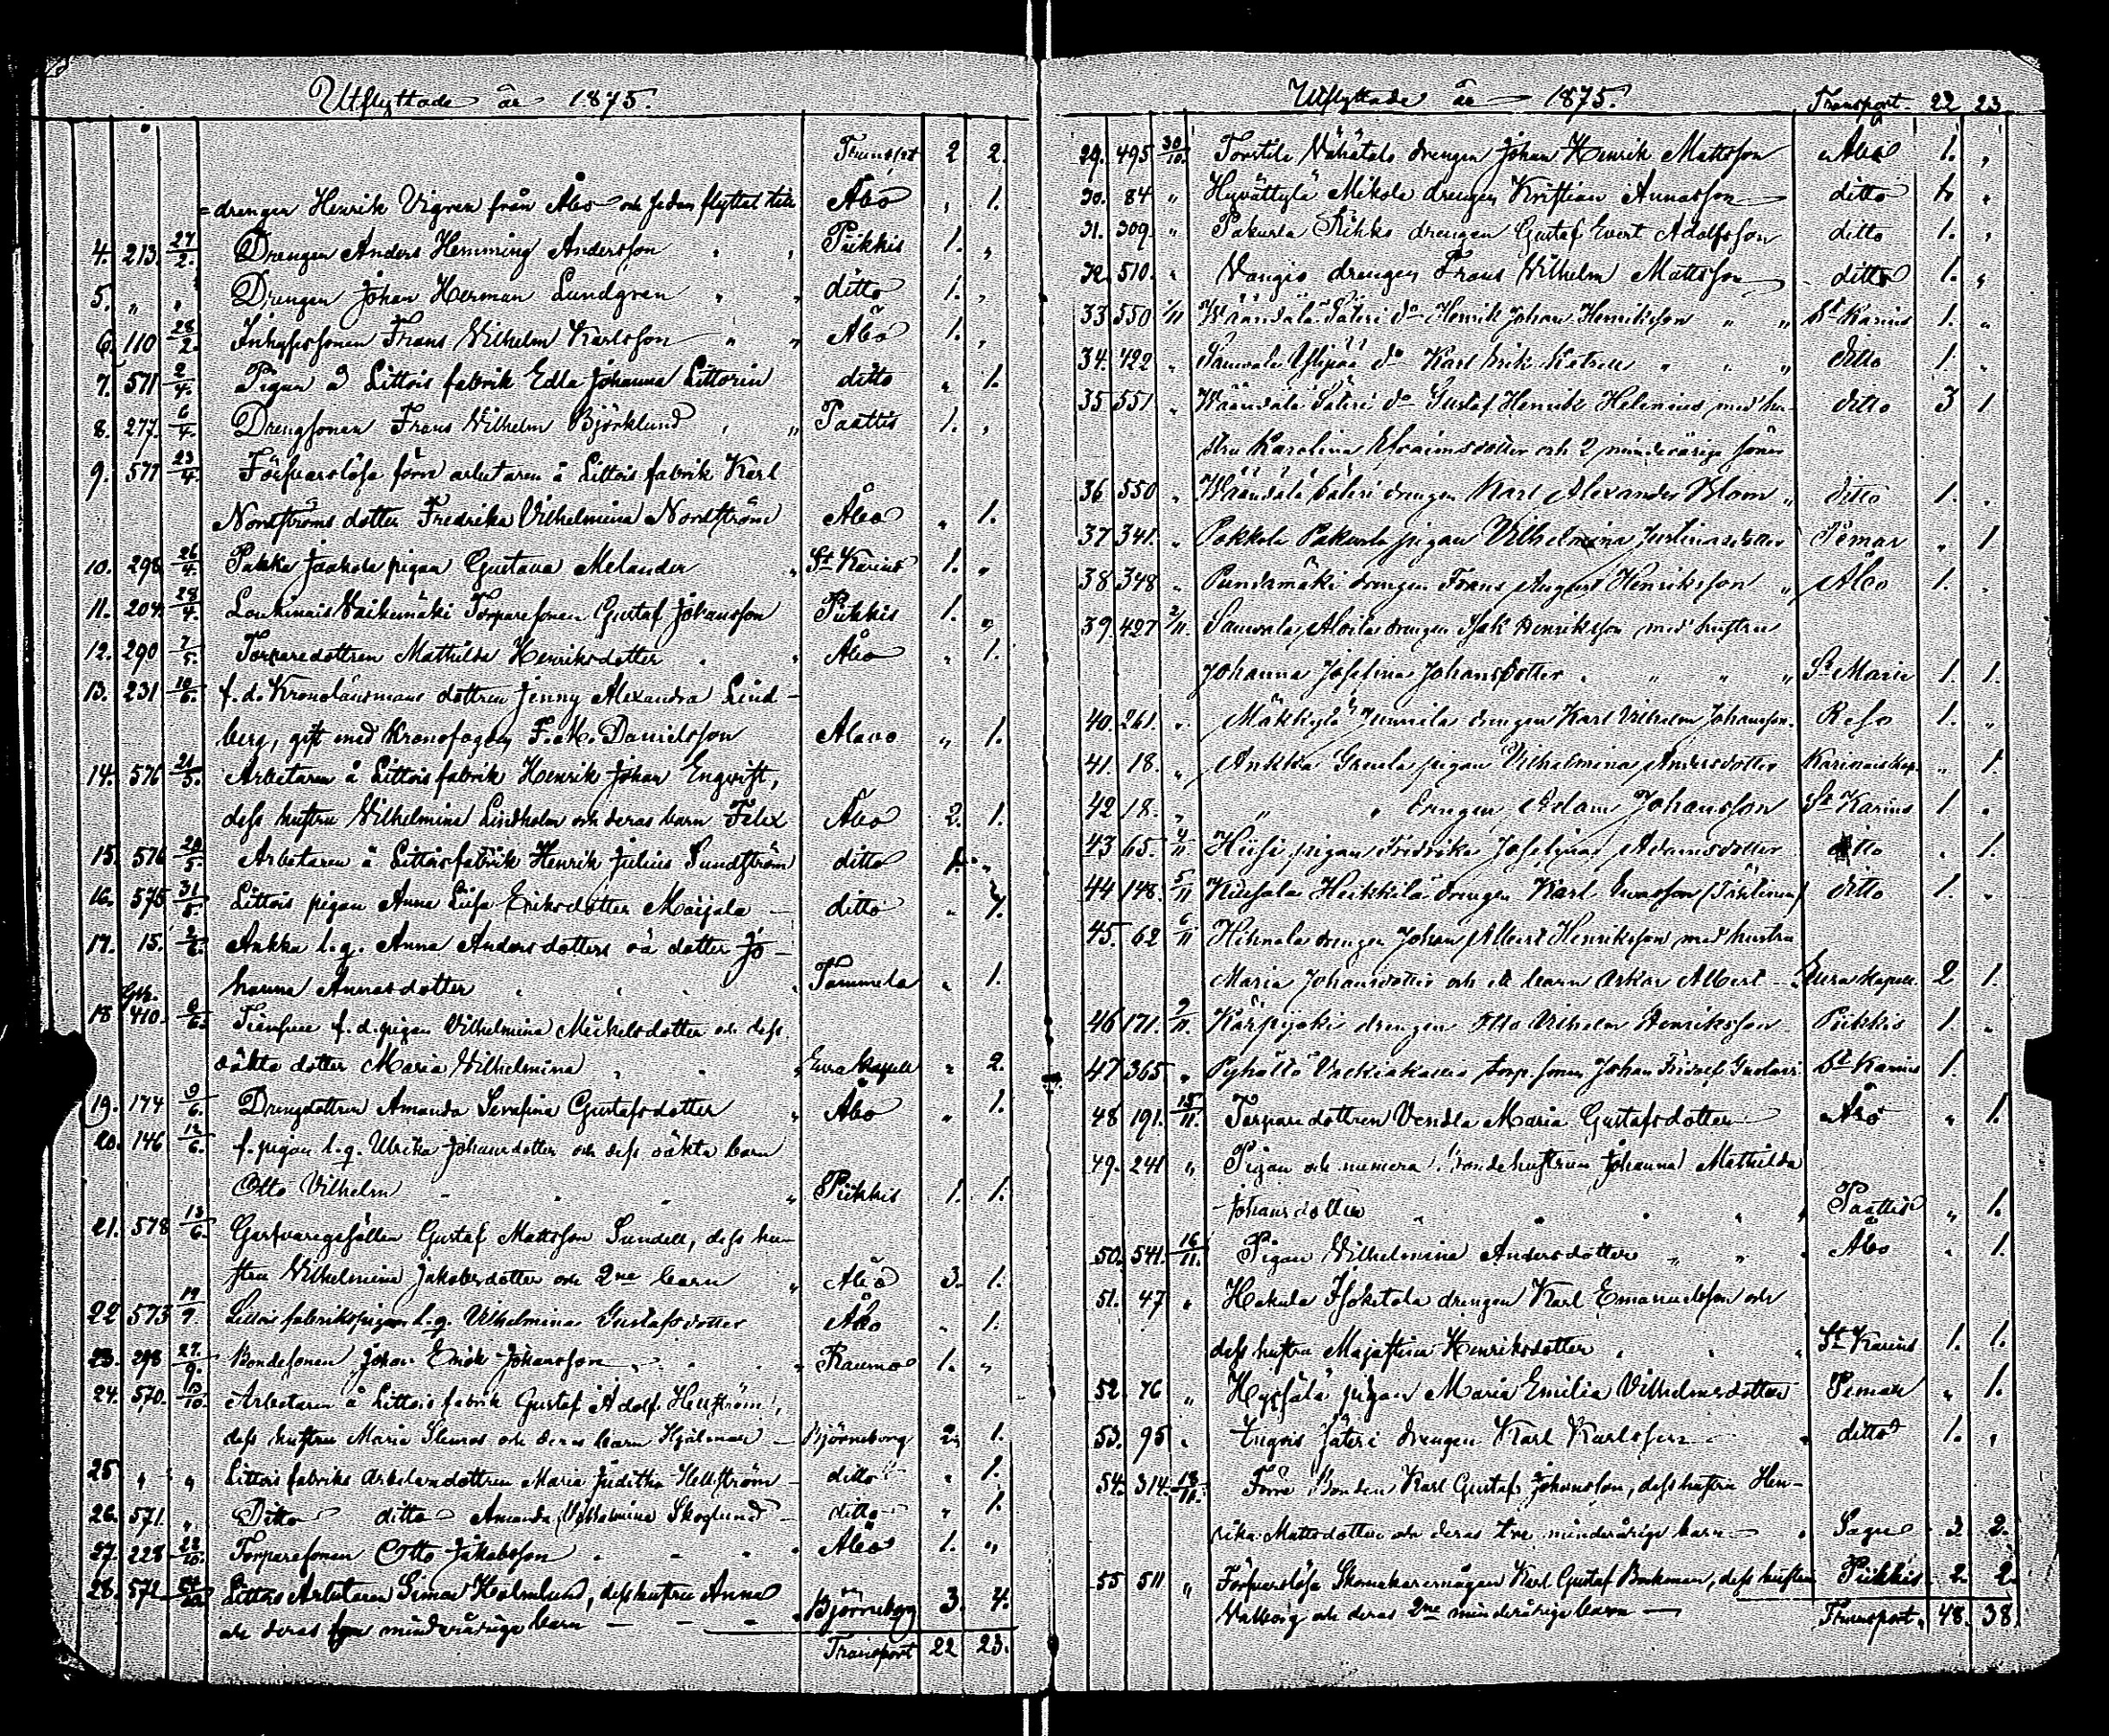 Utflyttade år 1875.
Transport 2 2.
= drengen Henrik Vigren från Åbo och sedan flyttat till Åbo , 1.
4. 213. 27/2. Drengen Anders Hemming Andersson " " Piikkis 1. "
5. " " Drengen Johan Herman Lundgren " " ditto 1. "
6. 110 28/2. Inhysessonen Frans Wilhelm Karlsson " " Åbo 1. "
7. 571 2/4. Pigan å Littois fabrik Edla Johanna Littorin ditto " 1.
8. 277. 6/4. Drengsonen Frans Wilhelm Björklund " " Paattis 1. "
9. 577 23/4. Försvarslösa förre arbetaren å Littois fabrik Karl
Nordströms dotter Fredrika Vilhelmina Nordström Åbo " 1.
10. 298 26/4. Pakka Jaakola pigan Gustava Melander " St Karins 1. "
11. 204. 28/4. Loukinais Vaikemäki Torparesonen Gustaf Johansson Piikkis 1. "
12. 290 7/5. Torparedottren Mathilda Henriksdotter " " Åbo " 1.
13. 231 10/6. f. d. Kronolänsmans dottren Jenny Alexandra Lind-
berg, gift med Kronofogden F. M. Danielsson Alavo " 1.
14. 576 21/5. Arbetaren å Littois fabrik Henrik Johan Engvist,
dess hustru Vilhelmina Lindholm och deras barn Felix Åbo 2. 1.
15. 576 28/5. Arbetaren å Littois fabrik Henrik Julius Sundström ditto 1. "
16. 575 31/5. Littois pigan Anna Lisa Eriksdotter Maijala - ditto " 1.
17. 15. 2/6. Ankka l. q. Anna Andersdotters oä dotter Jo-
hanna Annasdotter " " " Tammela " 1.
18 410. 8/6. f. d. pigan Vilhelmina Mickelsdotter och dess
oäkta dotter Maria Wilhelmina " " " Eura Kapell " 2.
19. 174 9/6. Drengdottren Amanda Serafina Gustafsdotter " Åbo " 1.
20. 146 12/6. f. pigan l. q. Ulrika Johansdotter och dess oäkta barn
Otto Vilhelm - " " " Piikkis 1. 1.
21. 578 13/6. Garfvaregesällen Gustaf Mattsson Sundell, dess hu-
stru Wilhelmina Jakobsdotter och 2ne barn " Åbo 3. 1.
22 573 19/9. Littois fabrikspigan l. q. Vilhelmina Gustafsdotter Åbo " 1.
23. 298 27./9. Bondesonen Johan Erick Johansson " " " Raumo 1. "
24. 570. 13/10. Arbetaren å Littois fabrik Gustaf Adolf Hellström,
dess hustru Maria och deras barn Hjalmar - Björneborg 2. 1.
25 " " Littois fabriks arbetaredottren Maria Juditha Hellström - ditto " 1.
26. 571. " Ditto ditto Amanda Vilhelmina Skoglund - ditto " 1.
27. 228 22/10. Torparesonen Otto Jakobsson " - - " Åbo 1. "
28. 571 Littois Arbetaren Simon Holmlund, dess hustru Anna
och deras minderåriga barn - - - Björneborg 3. 4.
Transport 22 23.
Utflyttade år 1875. Transport 22 23
29. 495 30/10. Torstila Vähätalo drengen Johan Henrik Mattsson Åbo 1. "
30. 84 " Hyvättylä Mikola drengen Kristian Annasson ditto 1. "
31. 309. " Pakurla Rihko drengen Gustaf Evert Adolfsson ditto 1. "
32. 510. " Vangio drengen Frans Wilhelm Mattsson ditto 1. "
33 550 1/11 Wääntälä Säteri do Henrik Johan Henriksson " " St Karins 1. "
34. 422 " Sauvala Ylipää do Karl Erik " " " ditto 1. "
35 551 " Wääntälä Säteri do Gustaf Henrik Helenius med hu- ditto 3 1
stru Karolina Efraimsdotter och 2 minderåriga söner
36 550 " Wääntälä Säteri drengen Karl Alexander Blom " ditto 1. "
37 341. " Pokkola Pakurla pigan Vilhelmina Justinasdotter Pemar " 1
38 348 " Punamäki drengen Frans August Henriksson " Åbo 1. "
39. 427 2/11. Sauvala Alvila drengen Isak Henriksson med hustru
Johanna Josefina Johansdotter " " " " St Marie 1. 1.
40. 261. " Mäkkylä Junnila drengen Karl Vilhelm Johansson. Reso 1. "
41. 18. " Ankka pigan Vilhelmina Andersdotter Karinais kap. " 1.
42 18. " " " drengen Adam Johansson St Karins 1. "
43 65. 4/11 Hiisi pigan Fredrika Josefina Adamsdotter ditto " 1.
44 148. 5/11 Kuusala Heikkilä drengen Karl Evasson (Tähtinen) ditto 1. "
45. 62 6/11 Hihnala drengen Johan Albert Henriksson med hustru
Maria Johansdotter och ett barn Oskar Albert - Eura Kapell 2 1.
46 171. 9/11. Kärpijoki drengen Otto Vilhelm Henriksson Piikkis 1. "
47 365 " Pyhältö torp. sonen Johan Fridolf Gustavss. St Karins 1.
48 191. 15/11. Torparedottren Vendla Maria Gustafsdotter Åbo " 1.
49. 241 " Pigan och numera bondehustrun Johanna Mathilda
Johansdotter " " " " Paattis " 1.
50. 541. 16/11. Pigan Wilhelmina Andersdotter " " " Åbo " 1.
51. 47 " Hakula Isoketola drengen Karl Emanuelsson och
dess hustru Majastina Henriksdotter " " " St Karins 1. 1.
52. 76 " pigan Maria Emilia Vilhelmsdotter Pemar " 1.
53. 95 " Lugois Säteri drengen Karl Karlsson - " ditto 1. "
54. 314. 18/11. Förre Bonden Karl Gustaf Johansson, dess hustru Hen-
rika Mattsdotter och deras tre minderåriga barn - " Sagu 3 2.
55 511 " Försvarslösa Skomakaremågen Karl Gustaf Backman, dess hustru Piikkis 2. 2.
Valborg och deras 2ne minderåriga barn - Transport. 48. 38.